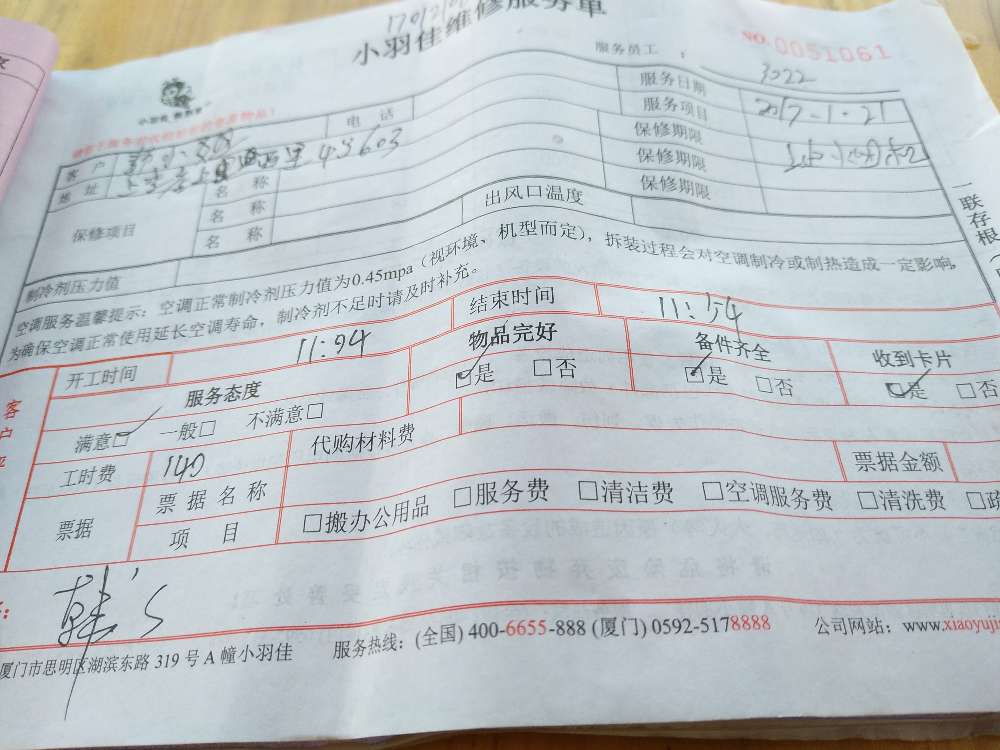 小羽佳维修服务单
NO. 0051061
服务员工: 3022
小羽佳
服务日期 2017-1-21
客户 电话
服务项目
地址 43603
保修项目 名称 保修期限
名称 保修期限
名称 保修期限
制冷剂压力值 出风口温度
空调服务温馨提示:空调正常制冷剂压力值为0.45mpa(视环境、机型而定),拆装过程会对空调制冷或制热造成一定影响,
为确保空调正常使用延长空调寿命,制冷剂不足时请及时补充。
一联存根
开工时间 11:94 结束时间 11:54
客户
服务态度 物品完好 备件齐全 收到卡片
满意☑ 一般□ 不满意□ ☑是 □否 ☑是 □否 ☑是 □否
工时费 140 代购材料费 票据金额
票据 票据名称
项目 □搬办公用品 □服务费 □清洁费 □空调服务费 □清洗费
韩's
厦门市思明区湖滨东路 319 号 A 幢小羽佳 服务热线:(全国) 400-6655-888 (厦门) 0592-5178888 公司网站:www.xiaoyuji